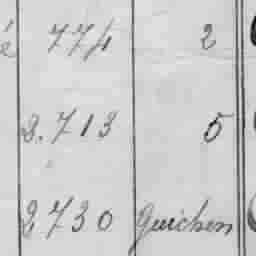 é 774 2
2.713 5
2730 Guichen